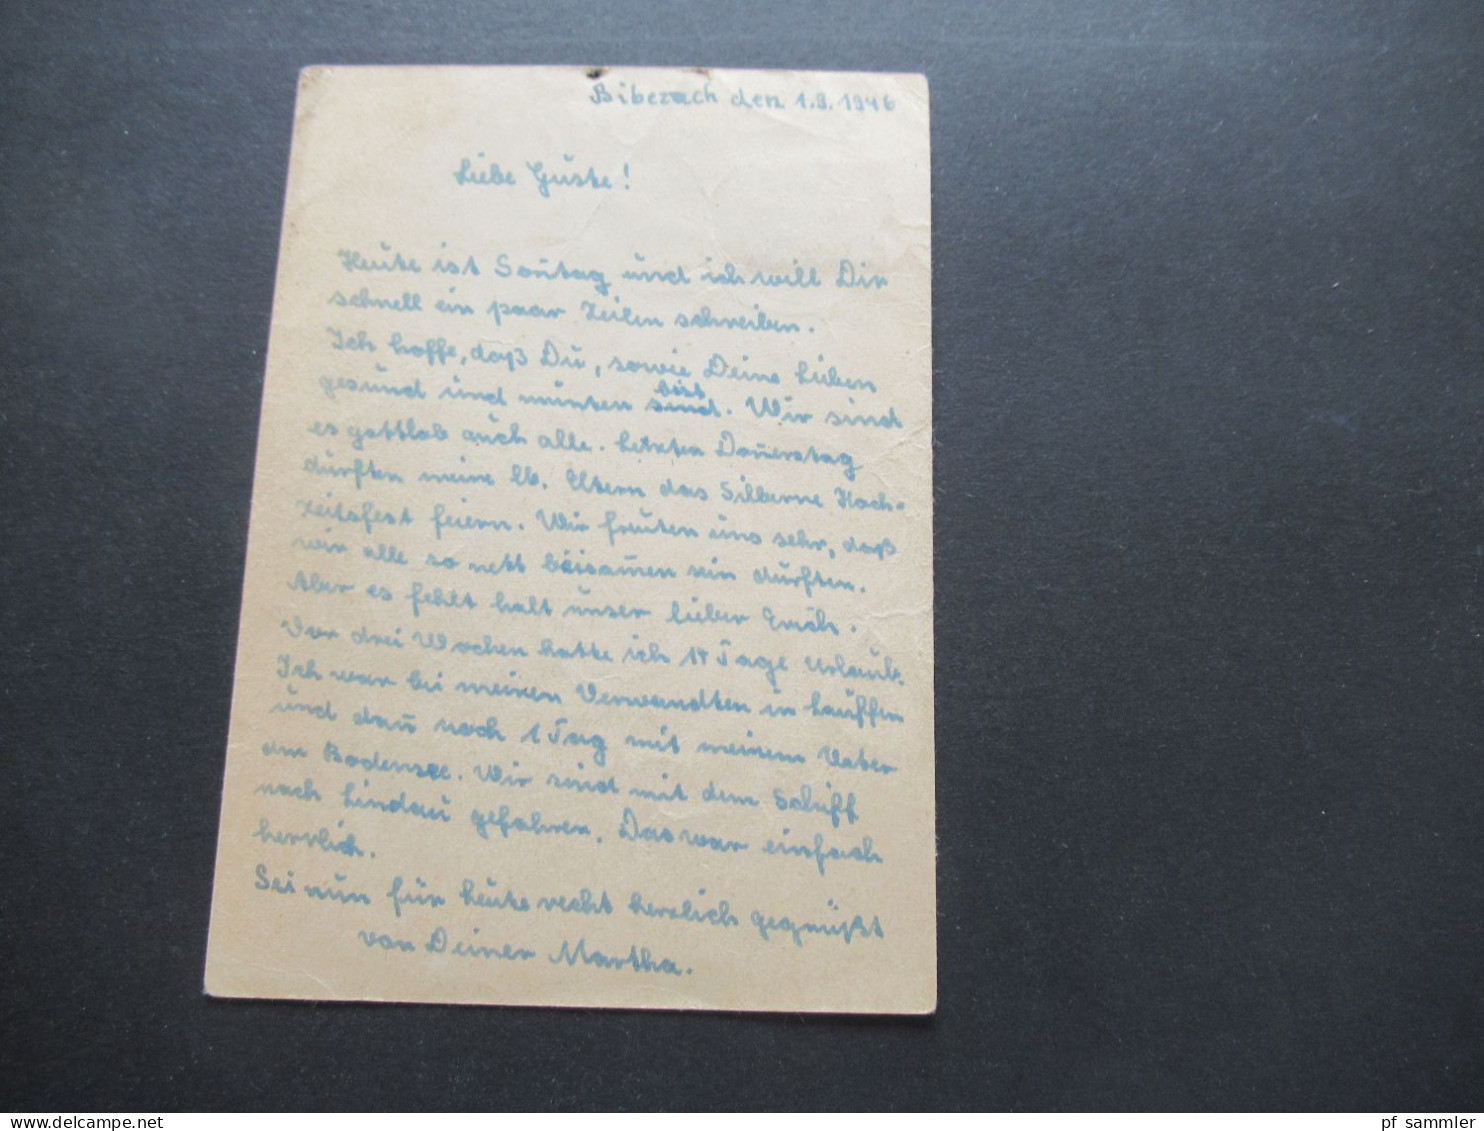 Biberach den 1.9.1946
Liebe Guste!
Heute ist Son̄tag und ich will Dir
schnell ein paar Zeilen schreiben.
Ich hoffe, daß Du, sowie Deine Lieben
gesund und munter bist
sind. Wir sind
es gottlob auch alle. Letzten Don̄erstag
durften meine lb. Eltern das Silberne Hoch-
zeitsfest feiern. Wir freuten uns sehr, daß
wir alle so nett beisam̄en sein durften.
Aber es fehlt halt unser lieber Erich.
Vor drei Wochen hatte ich 14 Tage Urlaub.
Ich war bei meinen Verwandten in Lauffen
und dan̄ noch 1 Tag mit meinem Vater
am Bodensee. Wir sind mit dem Schiff
nach Lindau gefahren. Das war einfach
herrlich.
Sei nun für heute recht herzlich gegrüßt
von Deiner Martha.
pf sammler